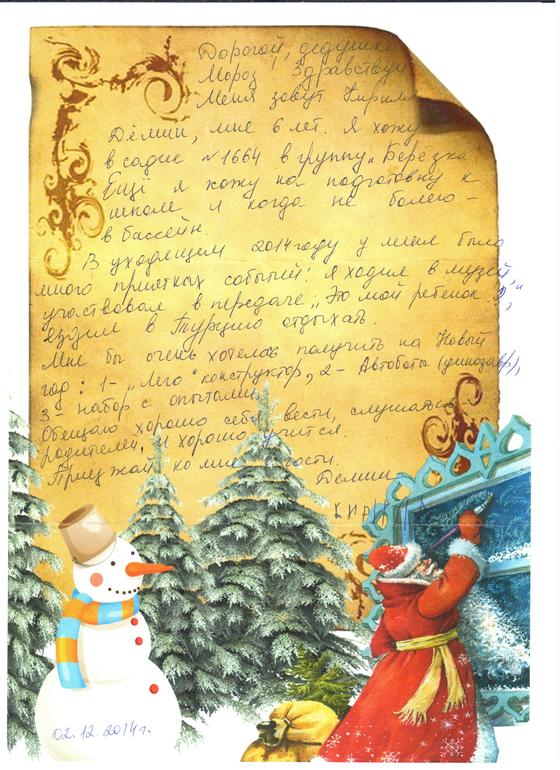 Дорогой, дедушка
Мороз! Здравствуй
Меня зовут Кирилл
Дёмин, мне 6 лет. Я хожу
в садик №1664 в группу „Березка
Ещё я хожу на подготовку к
школе и когда не болею -
в бассейн.
В уходящем 2014 году у меня было
много приятных событий! Я ходил в музей,
участвовал в передаче „Это мой ребенок
ездил в Турцию отдыхать.
Мне бы очень хотелось получить на Новый
год: 1- „Лего" конструктор, 2- Автоботы (динозавр),
3- набор с опытами
Обещаю хорошо себя вести, слушаться
родителей, и хорошо учится.
Приезжай ко мне в гости.
Дёмин
КИРИЛЛ
02.12.2014г.